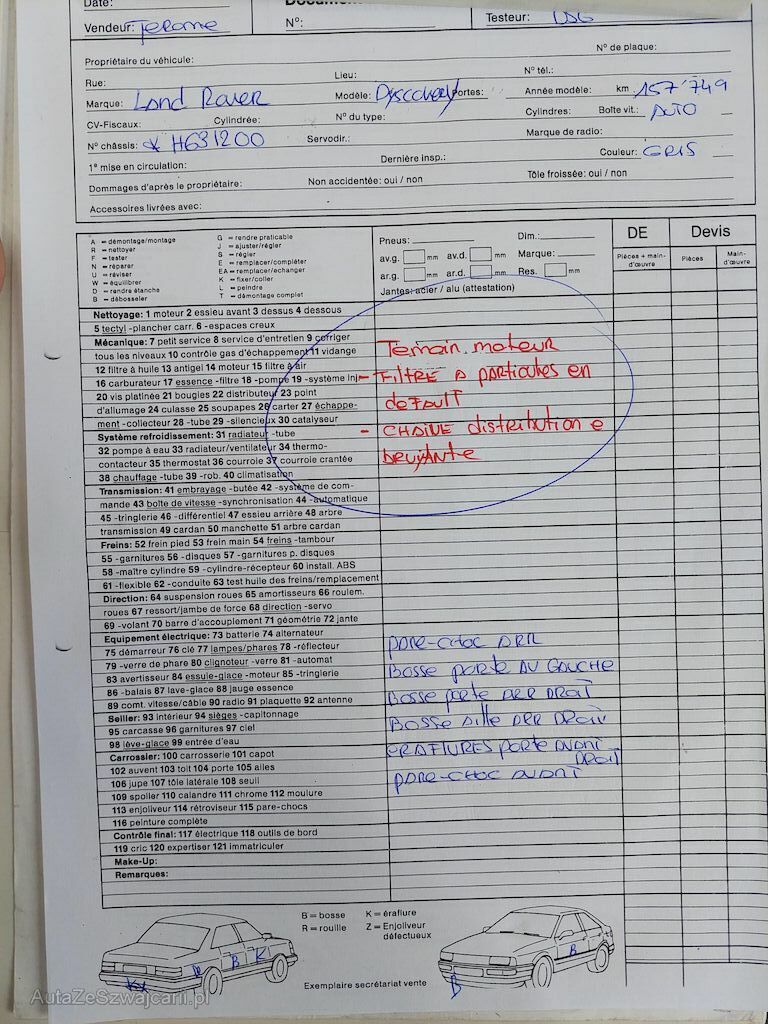 Date:
Vendeur: Jerome
N°:
Testeur: DSG
Propriétaire du véhicule:
N° de plaque:
Rue:
Lieu:
N° tél.:
Marque: Land Rover
Modèle: Dyscovery
Portes:
Année modèle:
km 157'749
CV-Fiscaux:
Cylindrée:
N° du type:
Cylindres:
Boîte vit.: AUTO
N° châssis: * H631200
Servodir.:
Marque de radio:
1e mise en circulation:
Dernière insp.:
Couleur: GRIS
Dommages d'après le propriétaire:
Non accidentée: oui / non
Tôle froissée: oui / non
Accessoires livrées avec:
A = démontage/montage
R = nettoyer
F = tester
N = réparer
U = réviser
W = équilibrer
D = rendre étanche
B = débosseler
G = rendre praticable
J = ajuster/régler
S = régler
E = remplacer/compléter
EA = remplacer/echanger
K = fixer/coller
L = peindre
T = démontage complet
Pneus:
Dim.:
av.g. mm av.d. mm Marque:
ar.g. mm ar.d. mm Res. mm
Jantes: acier / alu (attestation)
DE
Devis
Pièces + main-d'œuvre
Pièces
Main-d'œuvre
Nettoyage: 1 moteur 2 essieu avant 3 dessus 4 dessous
5 tectyl -plancher carr. 6 -espaces creux
Mécanique: 7 petit service 8 service d'entretien 9 corriger
tous les niveaux 10 contrôle gaz d'échappement 11 vidange
12 filtre à huile 13 antigel 14 moteur 15 filtre à air
16 carburateur 17 essence -filtre 18 -pompe 19 -système inj.
20 vis platinée 21 bougies 22 distributeur 23 point
d'allumage 24 culasse 25 soupapes 26 carter 27 échappe-
ment -collecteur 28 -tube 29 -silencieux 30 catalyseur
Système refroidissement: 31 radiateur -tube
32 pompe à eau 33 radiateur/ventilateur 34 thermo-
contacteur 35 thermostat 36 courroie 37 courroie crantée
38 chauffage -tube 39 -rob. 40 climatisation
Transmission: 41 embrayage -butée 42 -système de com-
mande 43 boîte de vitesse -synchronisation 44 -automatique
45 -tringlerie 46 -différentiel 47 essieu arrière 48 arbre
transmission 49 cardan 50 manchette 51 arbre cardan
Freins: 52 frein pied 53 frein main 54 freins -tambour
55 -garnitures 56 -disques 57 -garnitures p. disques
58 -maître cylindre 59 -cylindre-récepteur 60 install. ABS
61 -flexible 62 -conduite 63 test huile des freins/remplacement
Direction: 64 suspension roues 65 amortisseurs 66 roulem.
roues 67 ressort/jambe de force 68 direction -servo
69 -volant 70 barre d'accouplement 71 géométrie 72 jante
Equipement électrique: 73 batterie 74 alternateur
75 démarreur 76 clé 77 lampes/phares 78 -réflecteur
79 -verre de phare 80 clignoteur -verre 81 -automat
83 avertisseur 84 essuie-glace -moteur 85 -tringlerie
86 -balais 87 lave-glace 88 jauge essence
89 comt. vitesse/câble 90 radio 91 plaquette 92 antenne
Sellier: 93 intérieur 94 sièges -capitonnage
95 carcasse 96 garnitures 97 ciel
98 lève-glace 99 entrée d'eau
Carrossier: 100 carrosserie 101 capot
102 auvent 103 toit 104 porte 105 ailes
106 jupe 107 tôle latérale 108 seuil
109 spoiler 110 calandre 111 chrome 112 moulure
113 enjoliveur 114 rétroviseur 115 pare-chocs
116 peinture complète
Contrôle final: 117 électrique 118 outils de bord
119 cric 120 expertiser 121 immatriculer
Make-Up:
Remarques:
Temain moteur
- FILTRE A particules en
defaut
- CHAINE distribution e
bruyante
pare-choc ARR
Bosse porte AV GAUCHE
Bosse porte ARR DROIT
Bosse aille ARR DROIT
erAFLURES porte avant
DROIT
pare-choc avant
B = bosse
R = rouille
K = éraflure
Z = Enjoliveur
défectueux
B
K
B
B
Exemplaire secrétariat vente
AutaZeSzwajcarii.pl